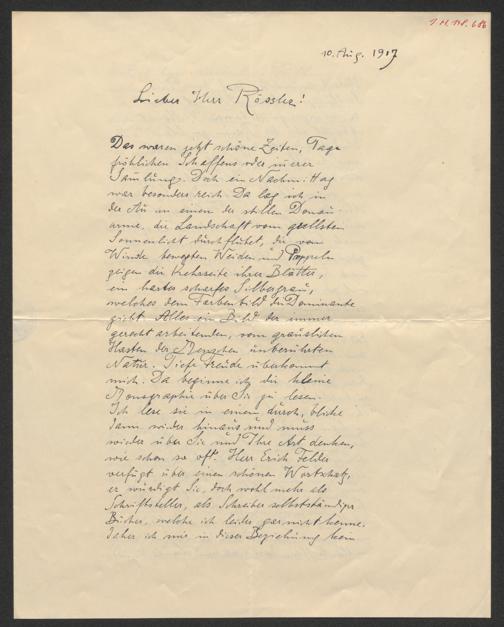 10. Aug. 1917
Lieber Herr Rössler!
Das waren jetzt schöne Zeiten, Tage
fröhlichen Schaffens oder innerer
Samlung. Doch ein Nachmittag
war besonders reich. Da lag ich in
der Au an einem der stillen Donau-
arme, die Landschaft vom grellsten
Sonnenlicht durchflutet, die vom
Winde bewegten Weiden und Pappeln
zeigen die Kehrseite ihrer Blätter,
ein hartes scharfes Silbergrau,
welches dem Farbenbild die Dominante
gibt. Alles ein Bild der immer
gerecht arbeitenden, vom grauslichen
Hasten der Menschen unberührten
Natur. Tiefe Freude überkommt
mich. Da beginne ich die kleine
Monographie über Sie zu lesen.
Ich lese sie in einem durch, blicke
dann wieder hinaus und muss
wieder über Sie und Ihre Art denken,
wie schon so oft. Herr Erich Felder
verfügt über einen schönen Wortschatz,
er würdigt Sie, doch wohl mehr als
Schriftsteller, als Schreiber selbstständiger
Bücher, welche ich leider gar nicht kenne.
Daher ich mir in dieser Beziehung kein